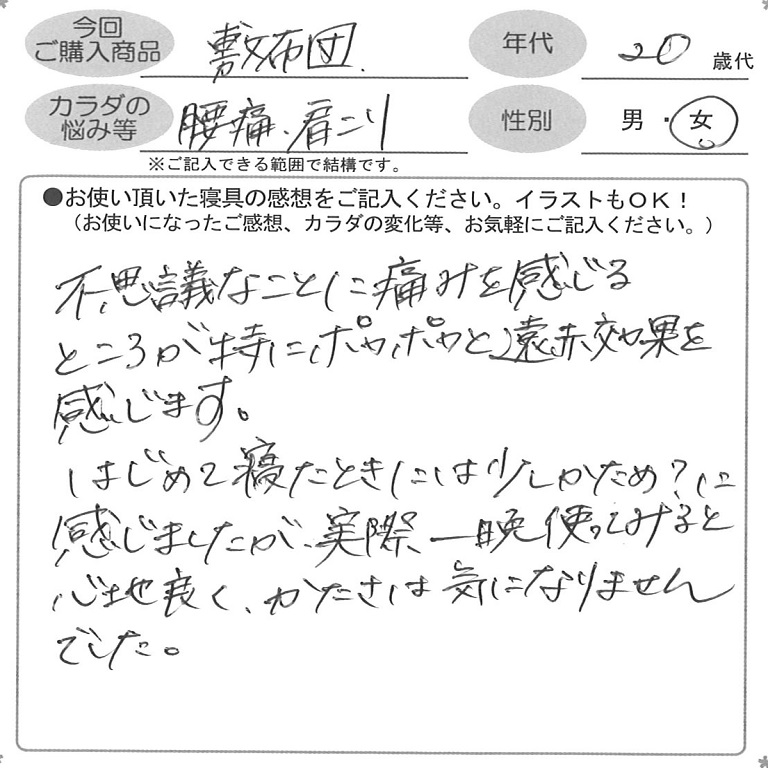 今回
ご購入商品
敷布団
年代
20
歳代
カラダの
悩み等
腰痛、肩こり
性別
男・女
※ご記入できる範囲で結構です。
●お使い頂いた寝具の感想をご記入ください。イラストもOK！
（お使いになったご感想、カラダの変化等、お気軽にご記入ください。）
不思議なことに痛みを感じる
ところが特にポカポカと遠赤効果を
感じます。
はじめて寝たときには少しかため？に
感じましたが、実際一晩使ってみると
心地良く、かたさは気になりません
でした。